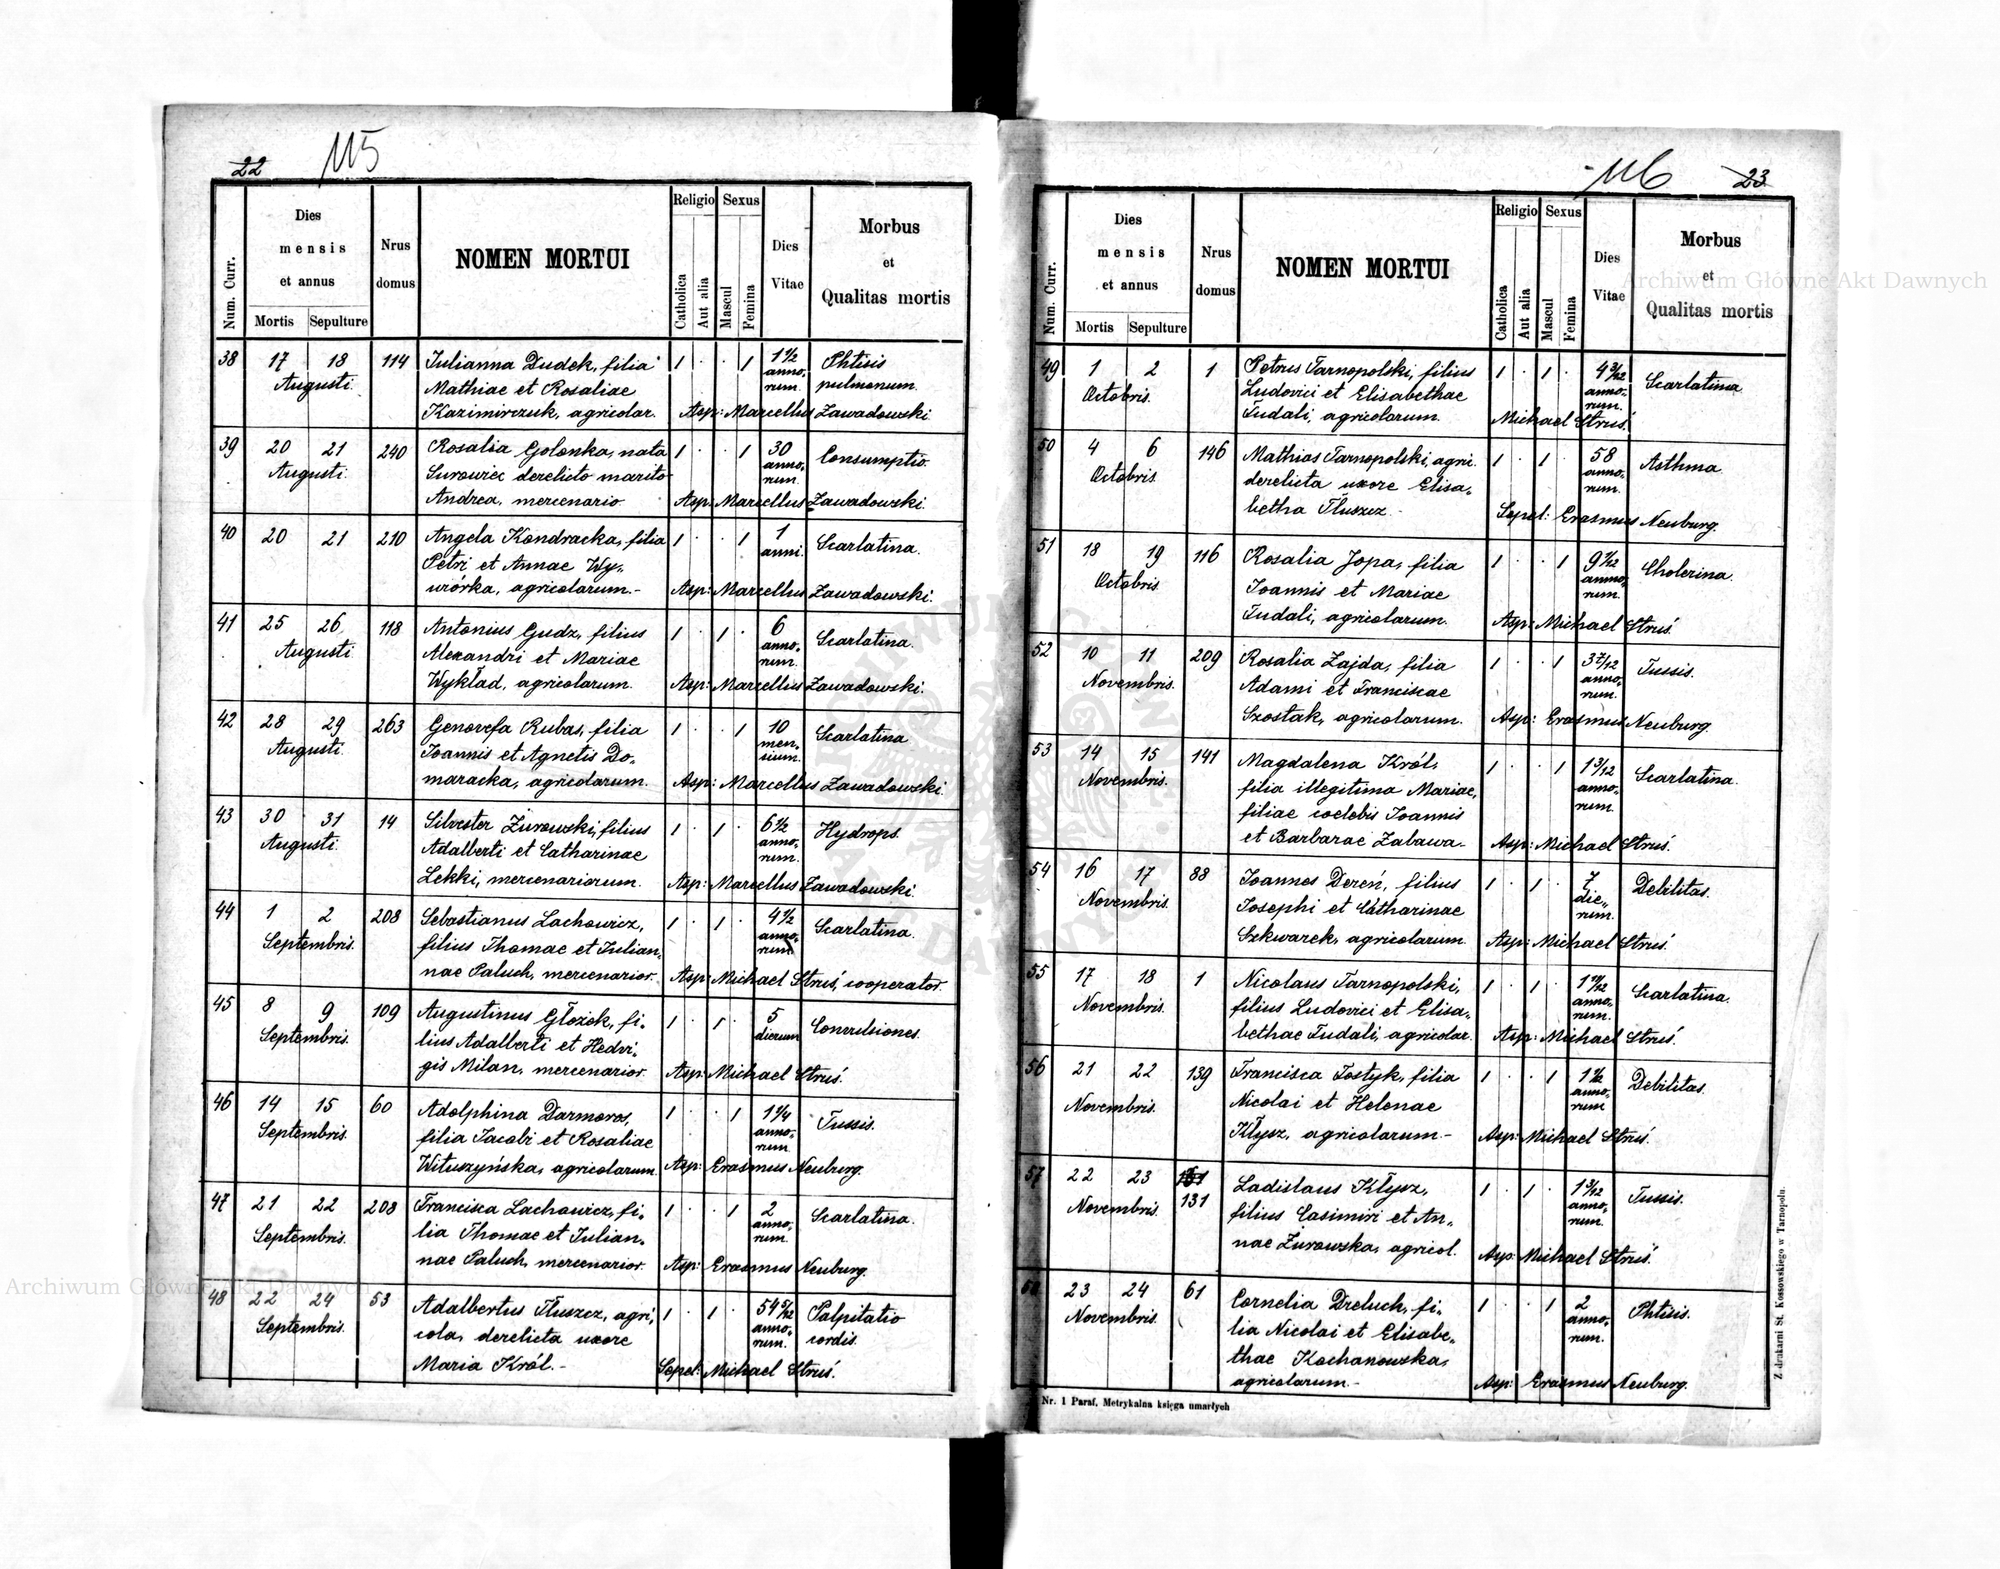 22
115
Num. Curr.
Dies
mensis
et annus
Mortis
Sepulture
Nrus
domus
NOMEN MORTUI
Religio
Catholica
Aut alia
Sexus
Mascul
Femina
Dies
Vitae
Morbus
et
Qualitas mortis
38 17 18 114 Iulianna Dudek, filia 1 . . 1 1 1/2 Phtisis
Augusti Mathiae et Rosaliae anno,, rum. pulmonum.
Kazimirczuk, agricolar. Asp: Marcellus Zawadowski
39 20 21 240 Rosalia Golonka, nata 1 . . 1 30 Consumptio.
Augusti Surowiec derelicto marito anno,, rum.
Andrea, mercenario. Asp: Marcellus Zawadowski.
40 20 21 210 Angela Kondracka, filia 1 . . 1 1 Scarlatina.
Petri et Annae Wy,, anni.
wiórka, agricolarum.- Asp: Marcellus Zawadowski.
41 25 26 118 Antonius Gudz, filius 1 . 1 . 6 Scarlatina.
Augusti Alexandri et Mariae anno,, rum.
Wykład, agricolarum. Asp: Marcellus Zawadowski.
42 28 29 263 Genovefa Rubas, filia 1 . . 1 10 Scarlatina
Augusti. Ioannis et Agnetis Do,, men,, sium.
maracka, agricolarum. Asp: Marcellus Zawadowski.
43 30 31 14 Silvester Żurowski, filius 1 . 1 . 6 1/2 Hydrops.
Augusti. Adalberti et Catharinae anno,, rum.
Lekki, mercenariorum. Asp: Marcellus Zawadowski.
44 1 2 208 Sebastianus Lachowicz, 1 . 1 . 4 1/2 Scarlatina.
Septembris. filius Thomae et Iulian,, anno,, rum
nae Paluch, mercenarior. Asp: Michael Struś, cooperator.
45 8 9 109 Augustinus Głożek, fi,, 1 . 1 . 5 Convulsiones.
Septembris. lius Adalberti et Hedvi,, dierum
gis Milan, mercenarior. Asp: Michael Struś.
46 14 15 60 Adolphina Darmoros, 1 . . 1 1 1/4 Tussis.
Septembris. filia Iacobi et Rosaliae anno,, rum
Wituszyńska, agricolarum. Asp: Erasmus Neuburg.
47 21 22 208 Francisca Lachowicz, fi,, 1 . . 1 2 Scarlatina.
Septembris. lia Thomae et Iulian,, anno,, rum.
nae Paluch, mercenarior. Asp: Erasmus Neuburg.
48 22 24 53 Adalbertus Tłuszcz, agri,, 1 . 1 . 54 5/12 Palpitatio
Septembris. cola, derelicta uxore anno,, rum. cordis.
Maria Król.- Sepel: Michael Struś.
116
23
Num. Curr.
Dies
mensis
et annus
Mortis
Sepulture
Nrus
domus
NOMEN MORTUI
Religio
Catholica
Aut alia
Sexus
Mascul
Femina
Dies
Vitae
Morbus
et
Qualitas mortis
49 1 2 1 Petrus Tarnopolski, filius 1 . 1 . 4 3/12 Scarlatina
Octobris. Ludovici et Elisabethae anno,, rum.
Tudali, agricolarum. Michael Struś.
50 4 6 146 Mathias Tarnopolski, agri. 1 . 1 . 58 Asthma
Octobris derelicta uxore Elisa,, anno,, rum.
betha Tłuszcz.- Sepel: Erasmus Neuburg.
51 18 19 116 Rosalia Jopa, filia 1 . . 1 9 1/12 Cholerina.
Octobris Ioannis et Mariae anno,, rum.
Tudali, agricolarum. Asp: Michael Struś.
52 10 11 209 Rosalia Zajda, filia 1 . . 1 3 7/12 Tussis.
Novembris. Adami et Franciscae anno,, rum.
Szostak, agricolarum. Asp: Erasmus Neuburg.
53 14 15 141 Magdalena Król, 1 . . 1 1 3/12 Scarlatina.
Novembris. filia illegitima Mariae, anno,, rum.
filiae coelebis Ioannis
et Barbarae Zabawa.- Asp: Michael Struś.
54 16 17 88 Ioannes Dereń, filius 1 . 1 . 7 Debilitas.
Novembris. Iosephi et Catharinae die,, rum.
Szkwarek, agricolarum. Asp: Michael Struś.
55 17 18 1 Nicolaus Tarnopolski, 1 . 1 . Scarlatina.
Novembris. filius Ludovici et Elisa,, anno,, rum.
bethae Tudali, agricolar. Asp: Michael Struś.
56 21 22 139 Francisca Tostyk, filia 1 . . 1 1 1/2 Debilitas
Novembris. Nicolai et Helenae anno,, rum
Kłysz, agricolarum.- Asp: Michael Struś.
57 22 23 131 Ladislaus Kłysz, 1 . 1 . 1 3/12 Tussis.
Novembris. filius Casimiri et An,, anno,, rum.
nae Żurowska, agricol. Asp: Michael Struś.
58 23 24 61 Cornelia Dreluch, fi,, 1 . . 1 2 Phtisis.
Novembris. lia Nicolai et Elisabe,, anno,, rum.
thae Kochanowska,
agricolarum.- Asp: Erasmus Neuburg.
Nr. 1 Paraf. Metrykalna księga umarłych
Z drukarni St. Kossowskiego w Tarnopolu.
Archiwum Główne Akt Dawnych
Archiwum Główne Akt Dawnych